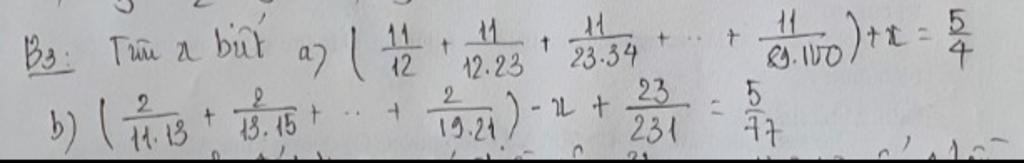 B3: Tìm x biết a) ( 11/12 + 11/12.23 + 11/23.34 + .. + 11/89.100 ) + x = 5/4
b) ( 2/11.13 + 2/13.15 + .. + 2/19.21 ) - x + 23/231 = 5/77